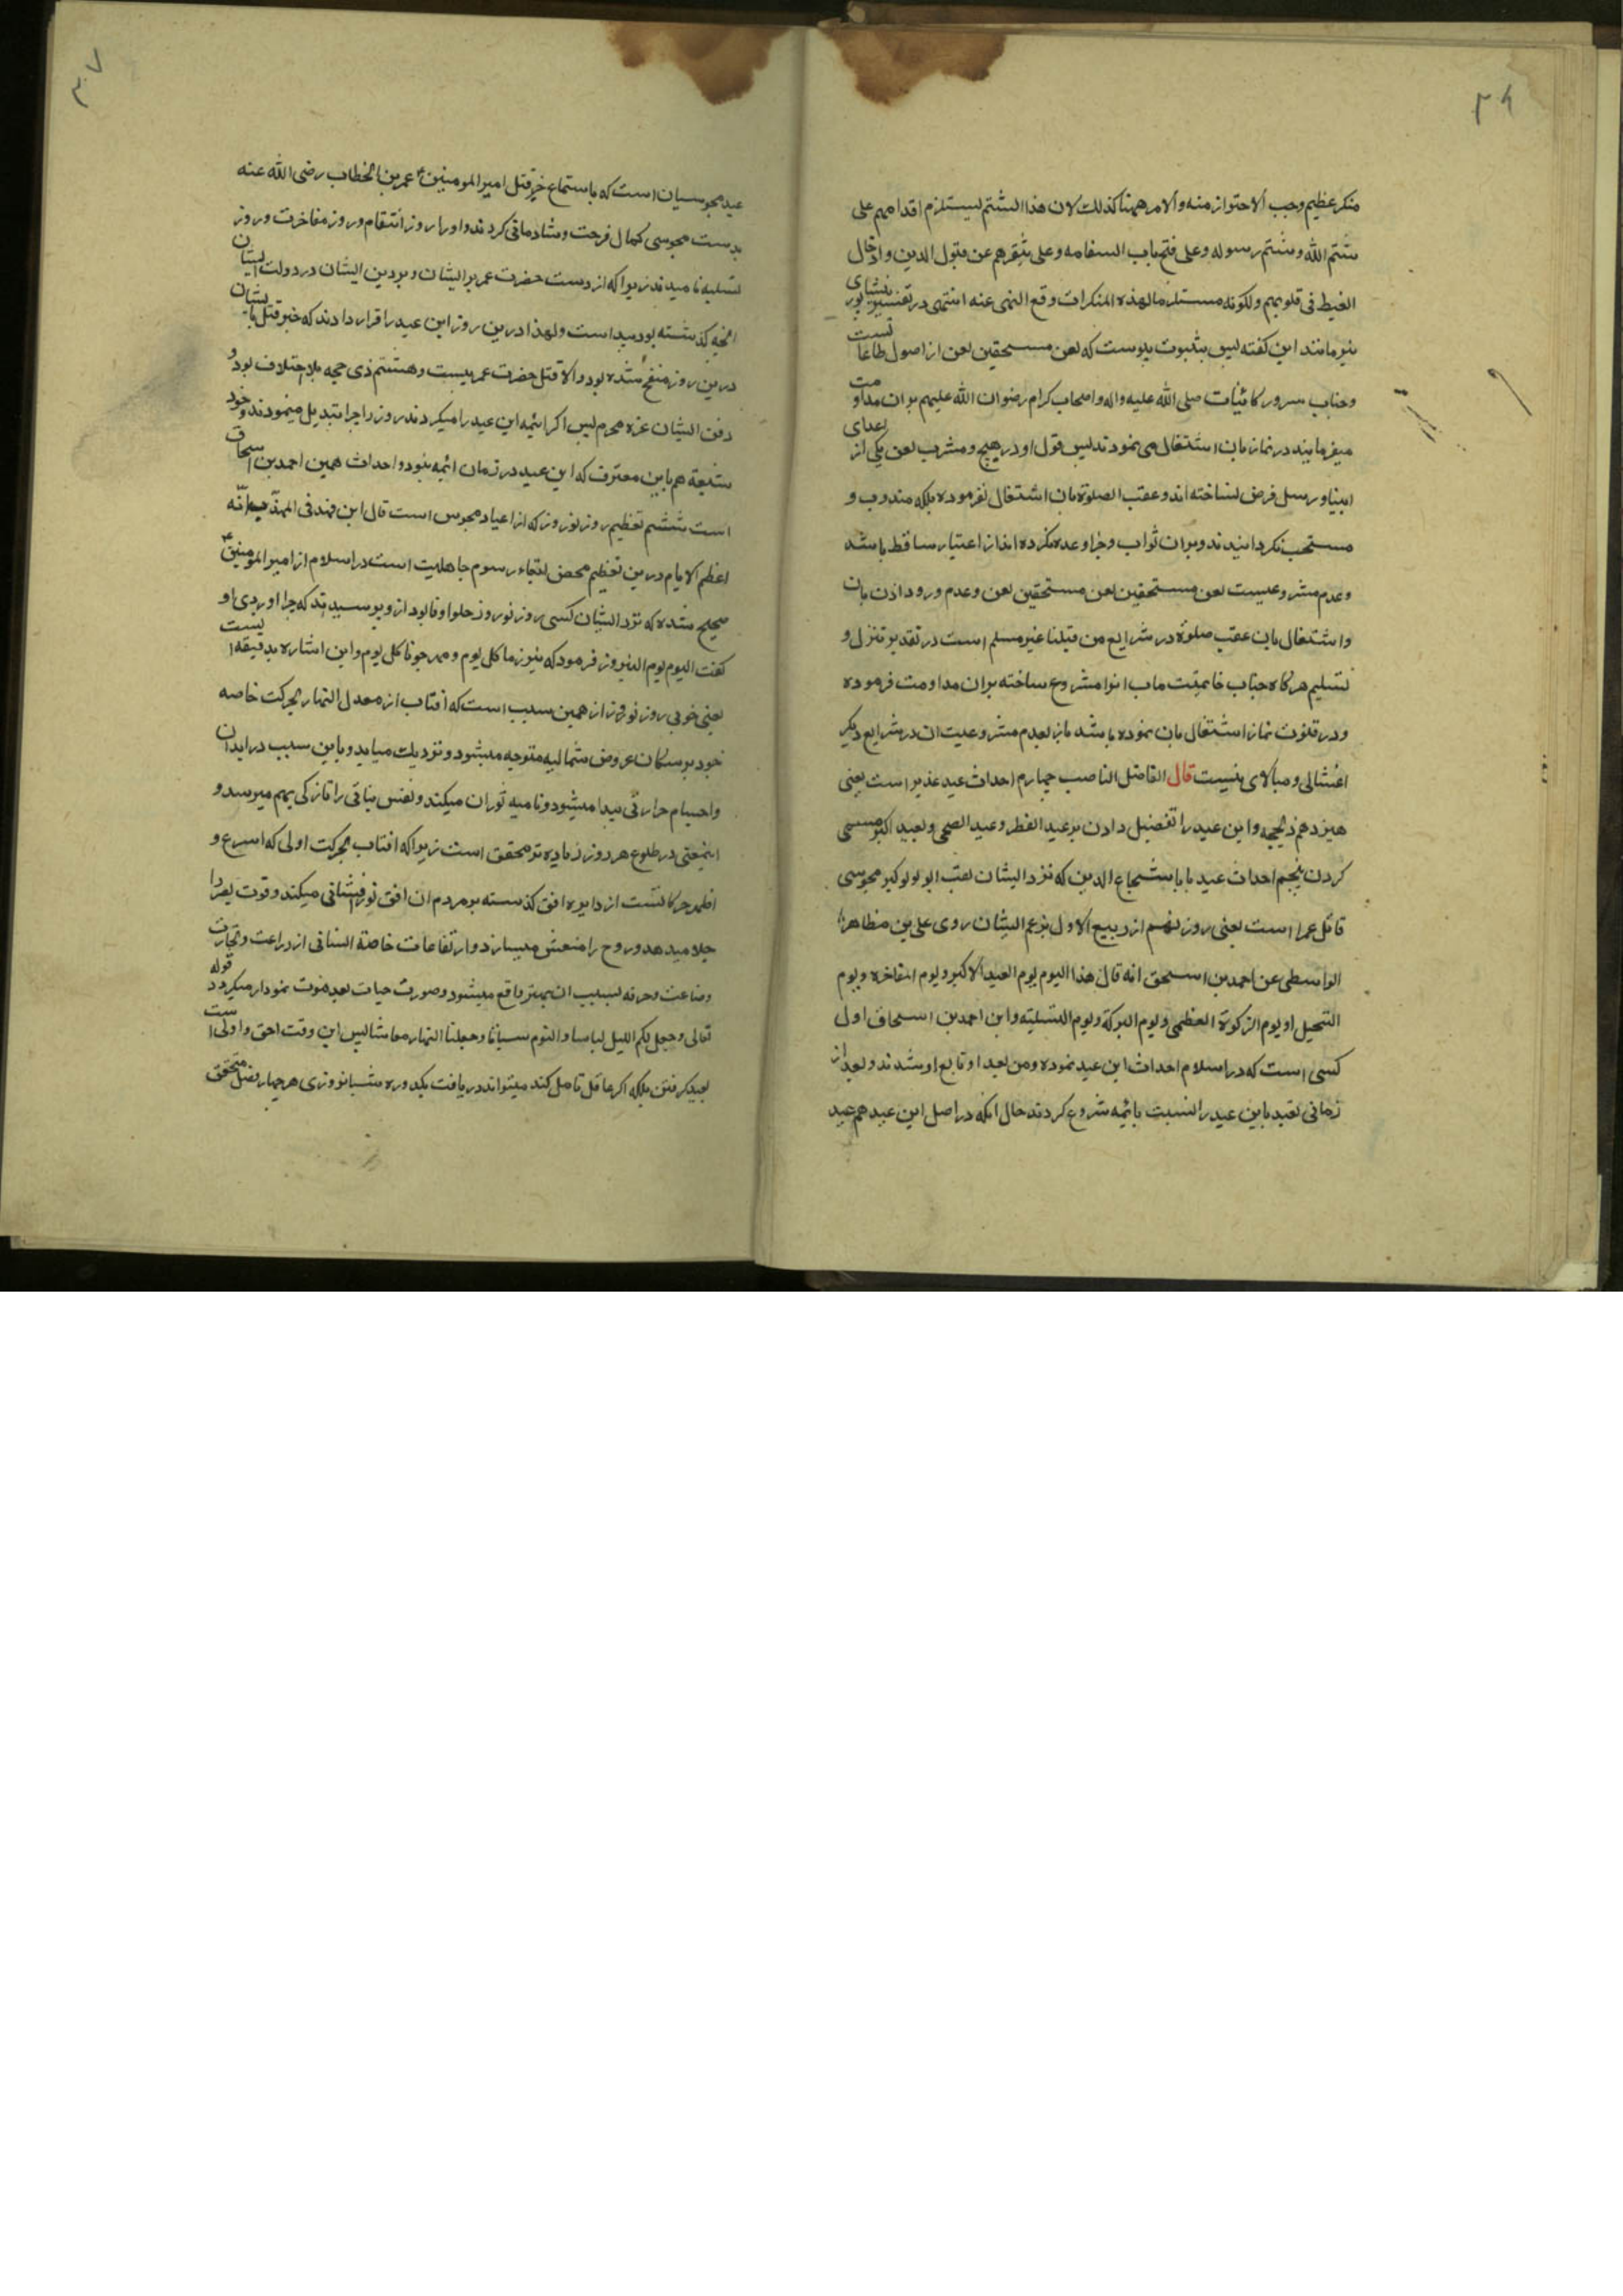 ۳۶
منکر عظیم وجب الاحتراز منه والامر ههنا کذلک لان هذا الشتم یستلزم اقدامهم علی
شتم الله وشتم رسوله وعلی فتح باب السفاهه وعلی تنفرهم عن قبول الدین وادخال
الغیظ فی قلوبهم ولکونه مستلزما لهذه المنکرات وقع النهی عنه انتهی در تفسیر نیشاپوری
نیومانند این کفته پس بثبوت پیوست که لعن مستحقین لعن از اصول طاعاتست
وجناب سرور کائنات صلی الله علیه واله واصحاب کرام رضوان الله علیهم بران مداومت
میفرمایند در نماز بان اشتغال می نمودند پس قول او در هیچ ومشرب لعن یکی از اعدای
انبیا ورسل فرض نساخته اند وعقب الصلوة بان اشتغال نفرموده بلکه مندوب و
مستحب نکردانیدند وبران ثواب وجزا وعده نکرده اند از اعتبار ساقط باشد
وعدم مشروعیت لعن مستحقین لعن مستحقین لعن وعدم ورود اذن بان
واشتغال بان عقب صلوة در شرایع من قبلنا غیر مسلم است در تقدیر تنزل و
تسلیم هرکاه جناب خاتمیت ماب انرا مشروع ساخته بران مداومت فرموده
ودر قنوت نماز اشتغال بان نموده باشد باز بعدم مشروعیت ان در شرایع دیکر
اعتنائی ومبالای نیست قال الفاضل الناصب چهارم احداث عید غدیر است یعنی
هیزدهم ذیحجه واین عید را تفضیل دادن بر عید الفطر وعید الضحی وبعید اکبر مسمی
کردن پنجم احداث عید بابا شجاع الدین که نزد ایشان لقب ابو لولو کبر مجوسی
قاتل عمر است یعنی روز نهم از ربیع الاول بزعم ایشان روی علی بن مظاهر
الواسطی عن احمد بن اسحق انه قال هذا الیوم یوم العید الاکبر ویوم المفاخره ویوم
التبجیل ویوم الزکوة العظمی ویوم البرکة ویوم التسلیه واین احمد بن اسحاق اول
کسی است که در اسلام احداث این عید نموده ومن بعد او تابع او شدند وبعد از
زمانی تعید باین عید را نسبت بائمه شروع کردند حال انکه در اصل این عید هم عید
۳۷
عید مجوسیان است که باستماع خبر قتل امیر المومنین عمر بن الخطاب رضی الله عنه
بدست مجوسی کمال فرحت وشادمانی کردند واو را روز انتقام وروز مفاخرت وروز
تسلیه نامیدند زیرا که از دست حضرت عمر بر ایشان وبر دین ایشان در دولت ایشان
انچه کذشته بود پیداست ولهذا درین روز این عید را قرار دادند که خبر قتل بایشان
درین روز منفح شده بود والا قتل حضرت عمر بیست وهشتم ذی حجه بلا اختلاف بود و
دفن ایشان غره محرم پس اکر ائمه این عید را میکردند روز را چرا تبدیل مینمودند وخود
شیعه هم باین معترف که این عید در زمان ائمه نبود واحداث همین احمد بن اسحاق
است ششم تعظیم روز نوروز که از اعیاد مجوس است قال ابن فهد فی المهذب انه
اعظم الایام درین تعظیم محض ابتغاء رسوم جاهلیت است در اسلام از امیر المومنین
صحیح شده که نزد ایشان کسی روز نوروز حلوا وفالوده از وپرسیدند که چرا اوردی او
کفت الیوم یوم النیروز فرمود که نیروزنا کل یوم ومهرجوننا کل یوم واین اشاره بدقیقه ایست
یعنی خوبی روز نوروز از همین سبب است که افتاب از معدل النهار بحرکت خاصه
خود بر سکان عروض شمالیه متوجه میشود ونزدیک میاید وباین سبب در ابدان
واجسام حرارتی پیدا میشود ونامیه توران میکند ونفس نباتی را تازکی بهم میرسد و
اینمعنی در طلوع هر روز زیاده تر محقق است زیرا که افتاب بحرکت اولی که اسرع و
اظهر حرکاتست از دایره افق کذشته بر مردم ان افق نور فشانی میکند وقوت بصر را
جلا میدهد وروح را منتعش میسازد وارتفاعات خاصة انسانی از زراعت وتجارت
وصناعت وحرفه بسبب ان بهتر واقع میشود وصورت حیات بعد موت نمودار میکردد قوله
تعالی وجعل لکم اللیل لباسا والنوم سباتا وجعلنا النهار معاشا پس این وقت احق واولی است
بعید کرفتن بلکه اکر عاقل تامل کند میتواند دریافت یکدوره شبانروزی هر چهار فصل متحقق